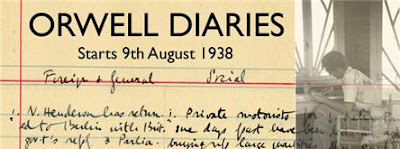 ORWELL DIARIES
Starts 9th August 1938
Foreign & General Social
1. N. Henderson has return- 1. Private motorists for
ed to Berlin with Brit. some days past have been
gov't's reply & Parlia- buying up large